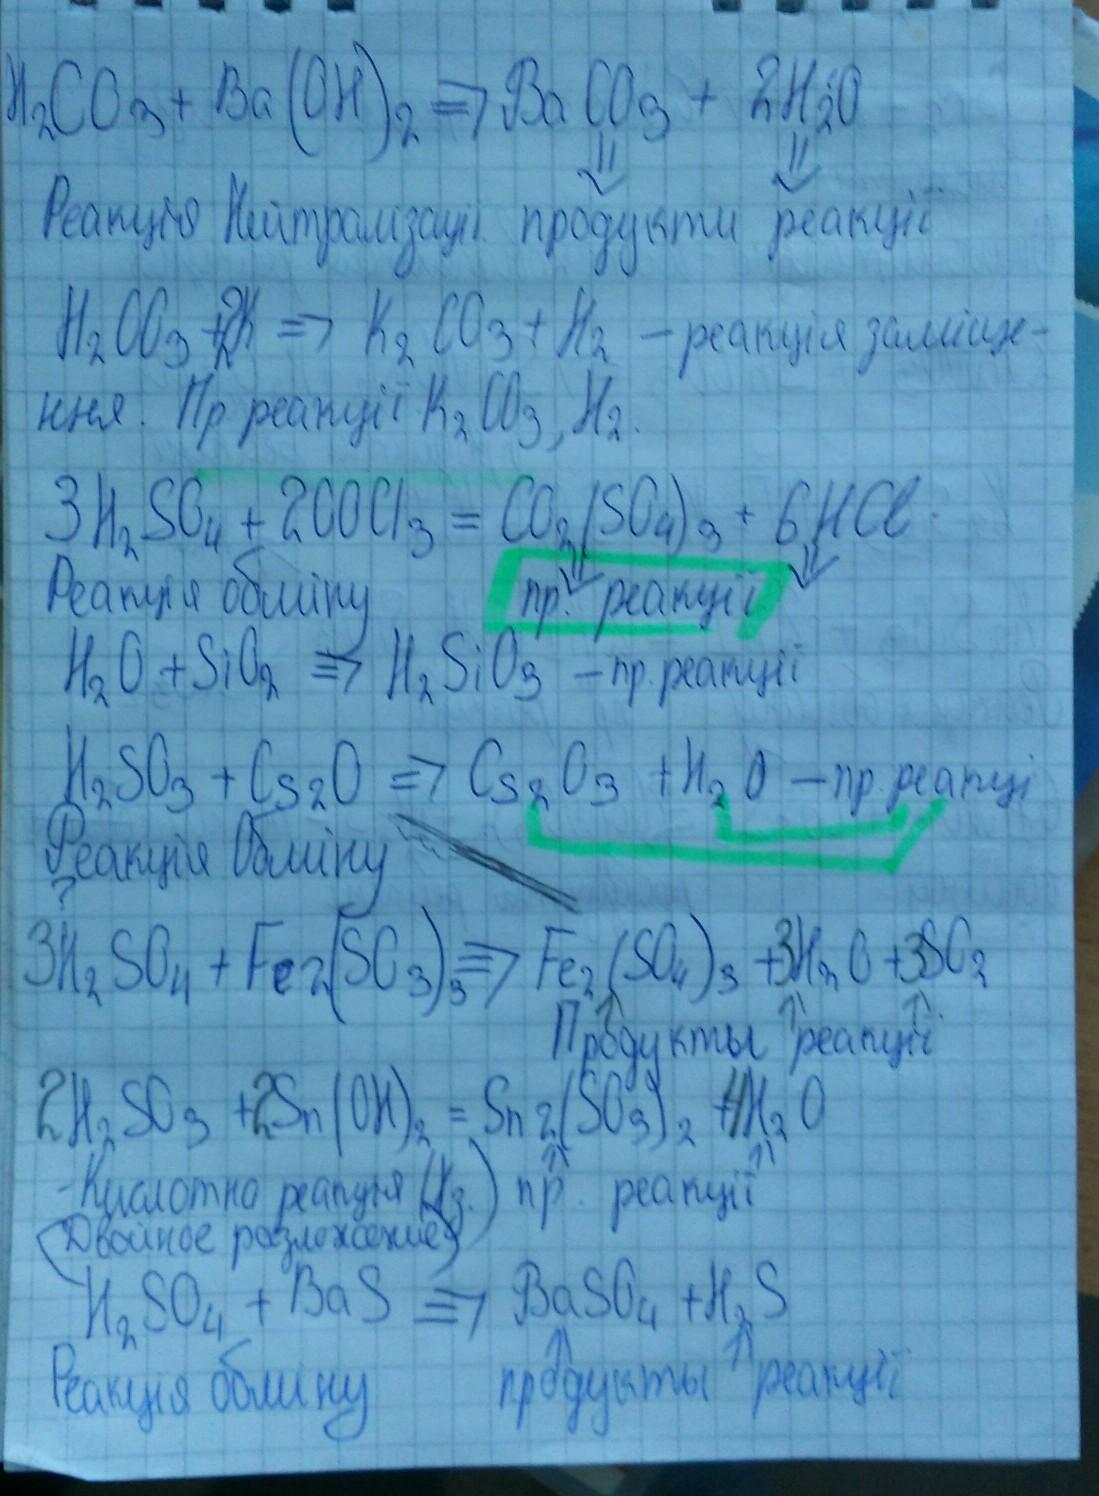 H₂CO₃ + Ba(OH)₂ => BaCO₃ + 2H₂O
Реакція Нейтралізації продукти реакції
H₂CO₃ + 2K => K₂CO₃ + H₂ – реакція заміще-
ння. Пр. реакції K₂CO₃, H₂.
3H₂SO₄ + 2COCl₃ = CO₂(SO₄)₃ + 6HCl.
Реакція обміну пр. реакції
H₂O + SiO₂ => H₂SiO₃ – пр. реакції
H₂SO₃ + Cs₂O => Cs₂O₃ + H₂O – пр. реакці
Реакція Обміну
?
3H₂SO₄ + Fe₂(SO₃)₃ => Fe₂(SO₄)₃ + 3H₂O + 3SO₂
Продукты реакції
2H₂SO₃ + 2Sn(OH)₂ = Sn₂(SO₃)₂ + 4H₂O
- Кислотно реакція пр. реакції
(Двойное разложение)
H₂SO₄ + BaS => BaSO₄ + H₂S
Реакція обміну продукты реакції